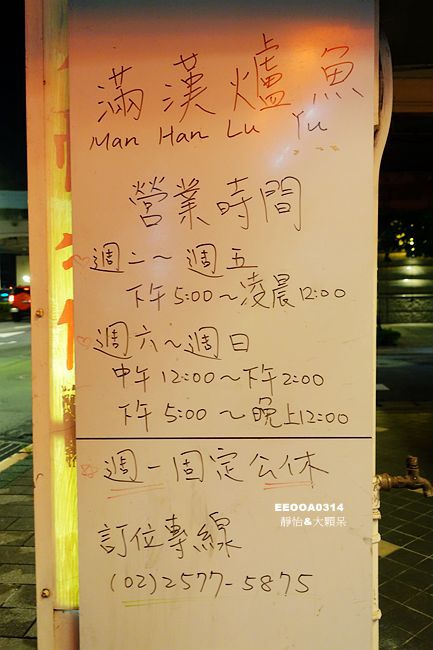 滿漢爐魚
Man Han Lu Yu
營業時間
週二~週五
下午5:00~凌晨12:00
週六~週日
中午12:00~下午2:00
下午5:00~晚上12:00
週一固定公休
EEOOA0314
靜怡&大顆呆
訂位專線
(02)2577-5875